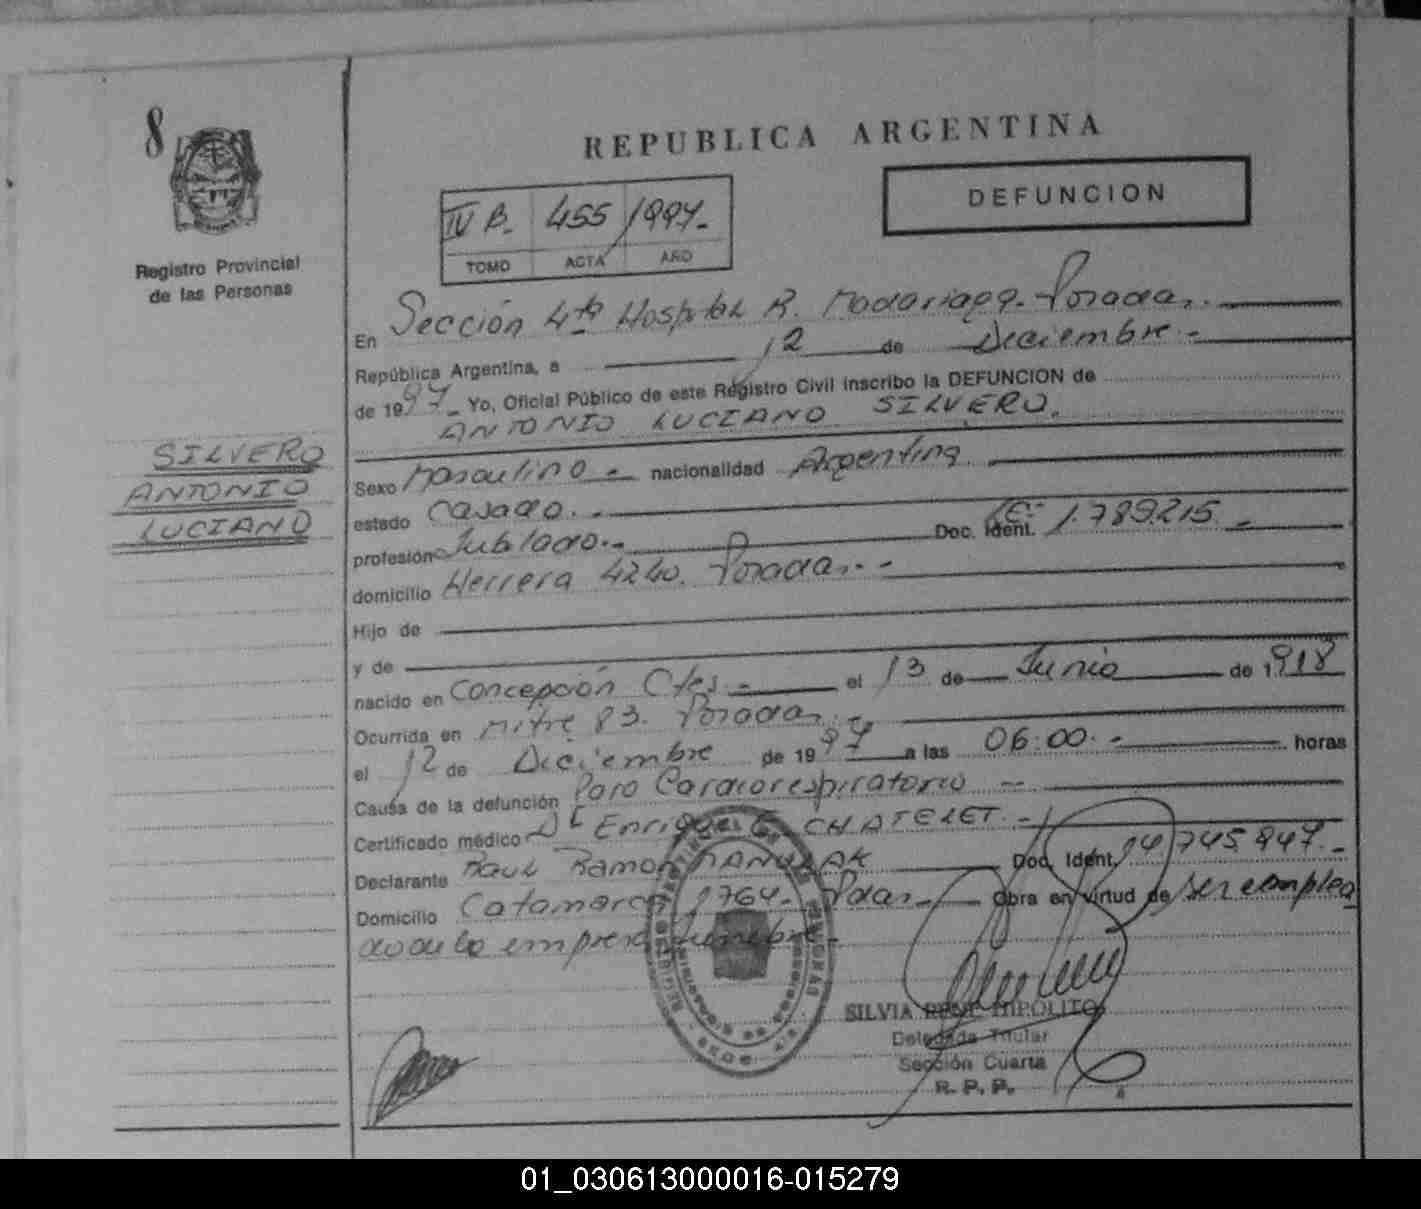 8
REPUBLICA ARGENTINA
DEFUNCION
IV B. 455 / 1997.-
TOMO ACTA AÑO
Registro Provincial
de las Personas
En Sección 4ta Hospital R. Madariaga. Posadas.
República Argentina, a 12 de Diciembre.-
de 1997.- Yo, Oficial Público de este Registro Civil inscribo la DEFUNCION de
ANTONIO LUCIANO SILVERO.
SILVERO
ANTONIO
LUCIANO
Sexo Masculino.- nacionalidad Argentina
estado Casado.-
profesión Jubilado.- Doc. Ident. LE- 1.789.215.-
domicilio Herrera 4240. Posadas.-
Hijo de
y de
nacido en Concepción Ctes.- el 13 de Junio de 1918
Ocurrida en Mitre 83. Posadas.-
el 12 de Diciembre de 1997 a las 06:00.- horas
Causa de la defunción Paro Cardiorespiratorio.-
Certificado médico Dr Enrique CHATELET.-
Declarante Raul Ramon Doc. Ident. 14.745.947.-
Domicilio Catamarca 1764. Pdas.- Obra en virtud de ser emplea
do de la empresa funebre.-
SILVIA RENE HIPOLITO
Delegada Titular
Sección Cuarta
R. P. P.
01_030613000016-015279